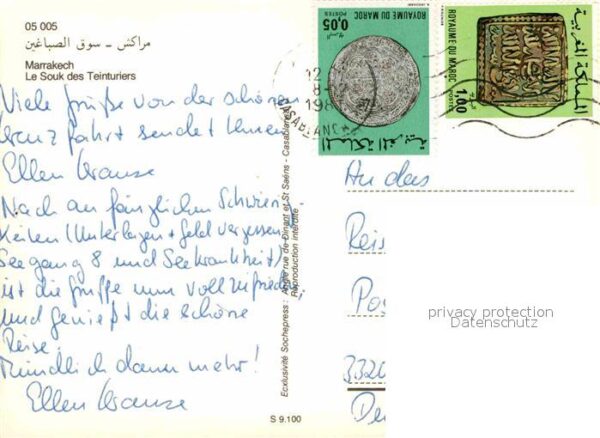 05 005
مراكش - سوق الصباغين
Marrakech
Le Souk des Teinturiers
Viele Grüße von der schönen
Kreuzfahrt sendet Ihnen
Ellen Krause
Nach anfänglichen Schwierig-
keiten (Unterlagen + Geld vergessen,
Seegang 8 und Seekrankheit)
ist die Gruppe nun voll zufrieden
und genießt die schöne
Reise.
Mündlich dann mehr!
Ellen Krause
Exclusivité Sochepress: Angle rue de Dinant et St Saëns - Casablanca
Reproduction interdite
S 9.100
0.05
POSTES
ROYAUME DU MAROC
المملكة المغربية
ROYAUME DU MAROC
POSTES
1.00
المملكة المغربية
12
CASABLANCA
An das
Reis
Pos
3320
privacy protection
Datenschutz